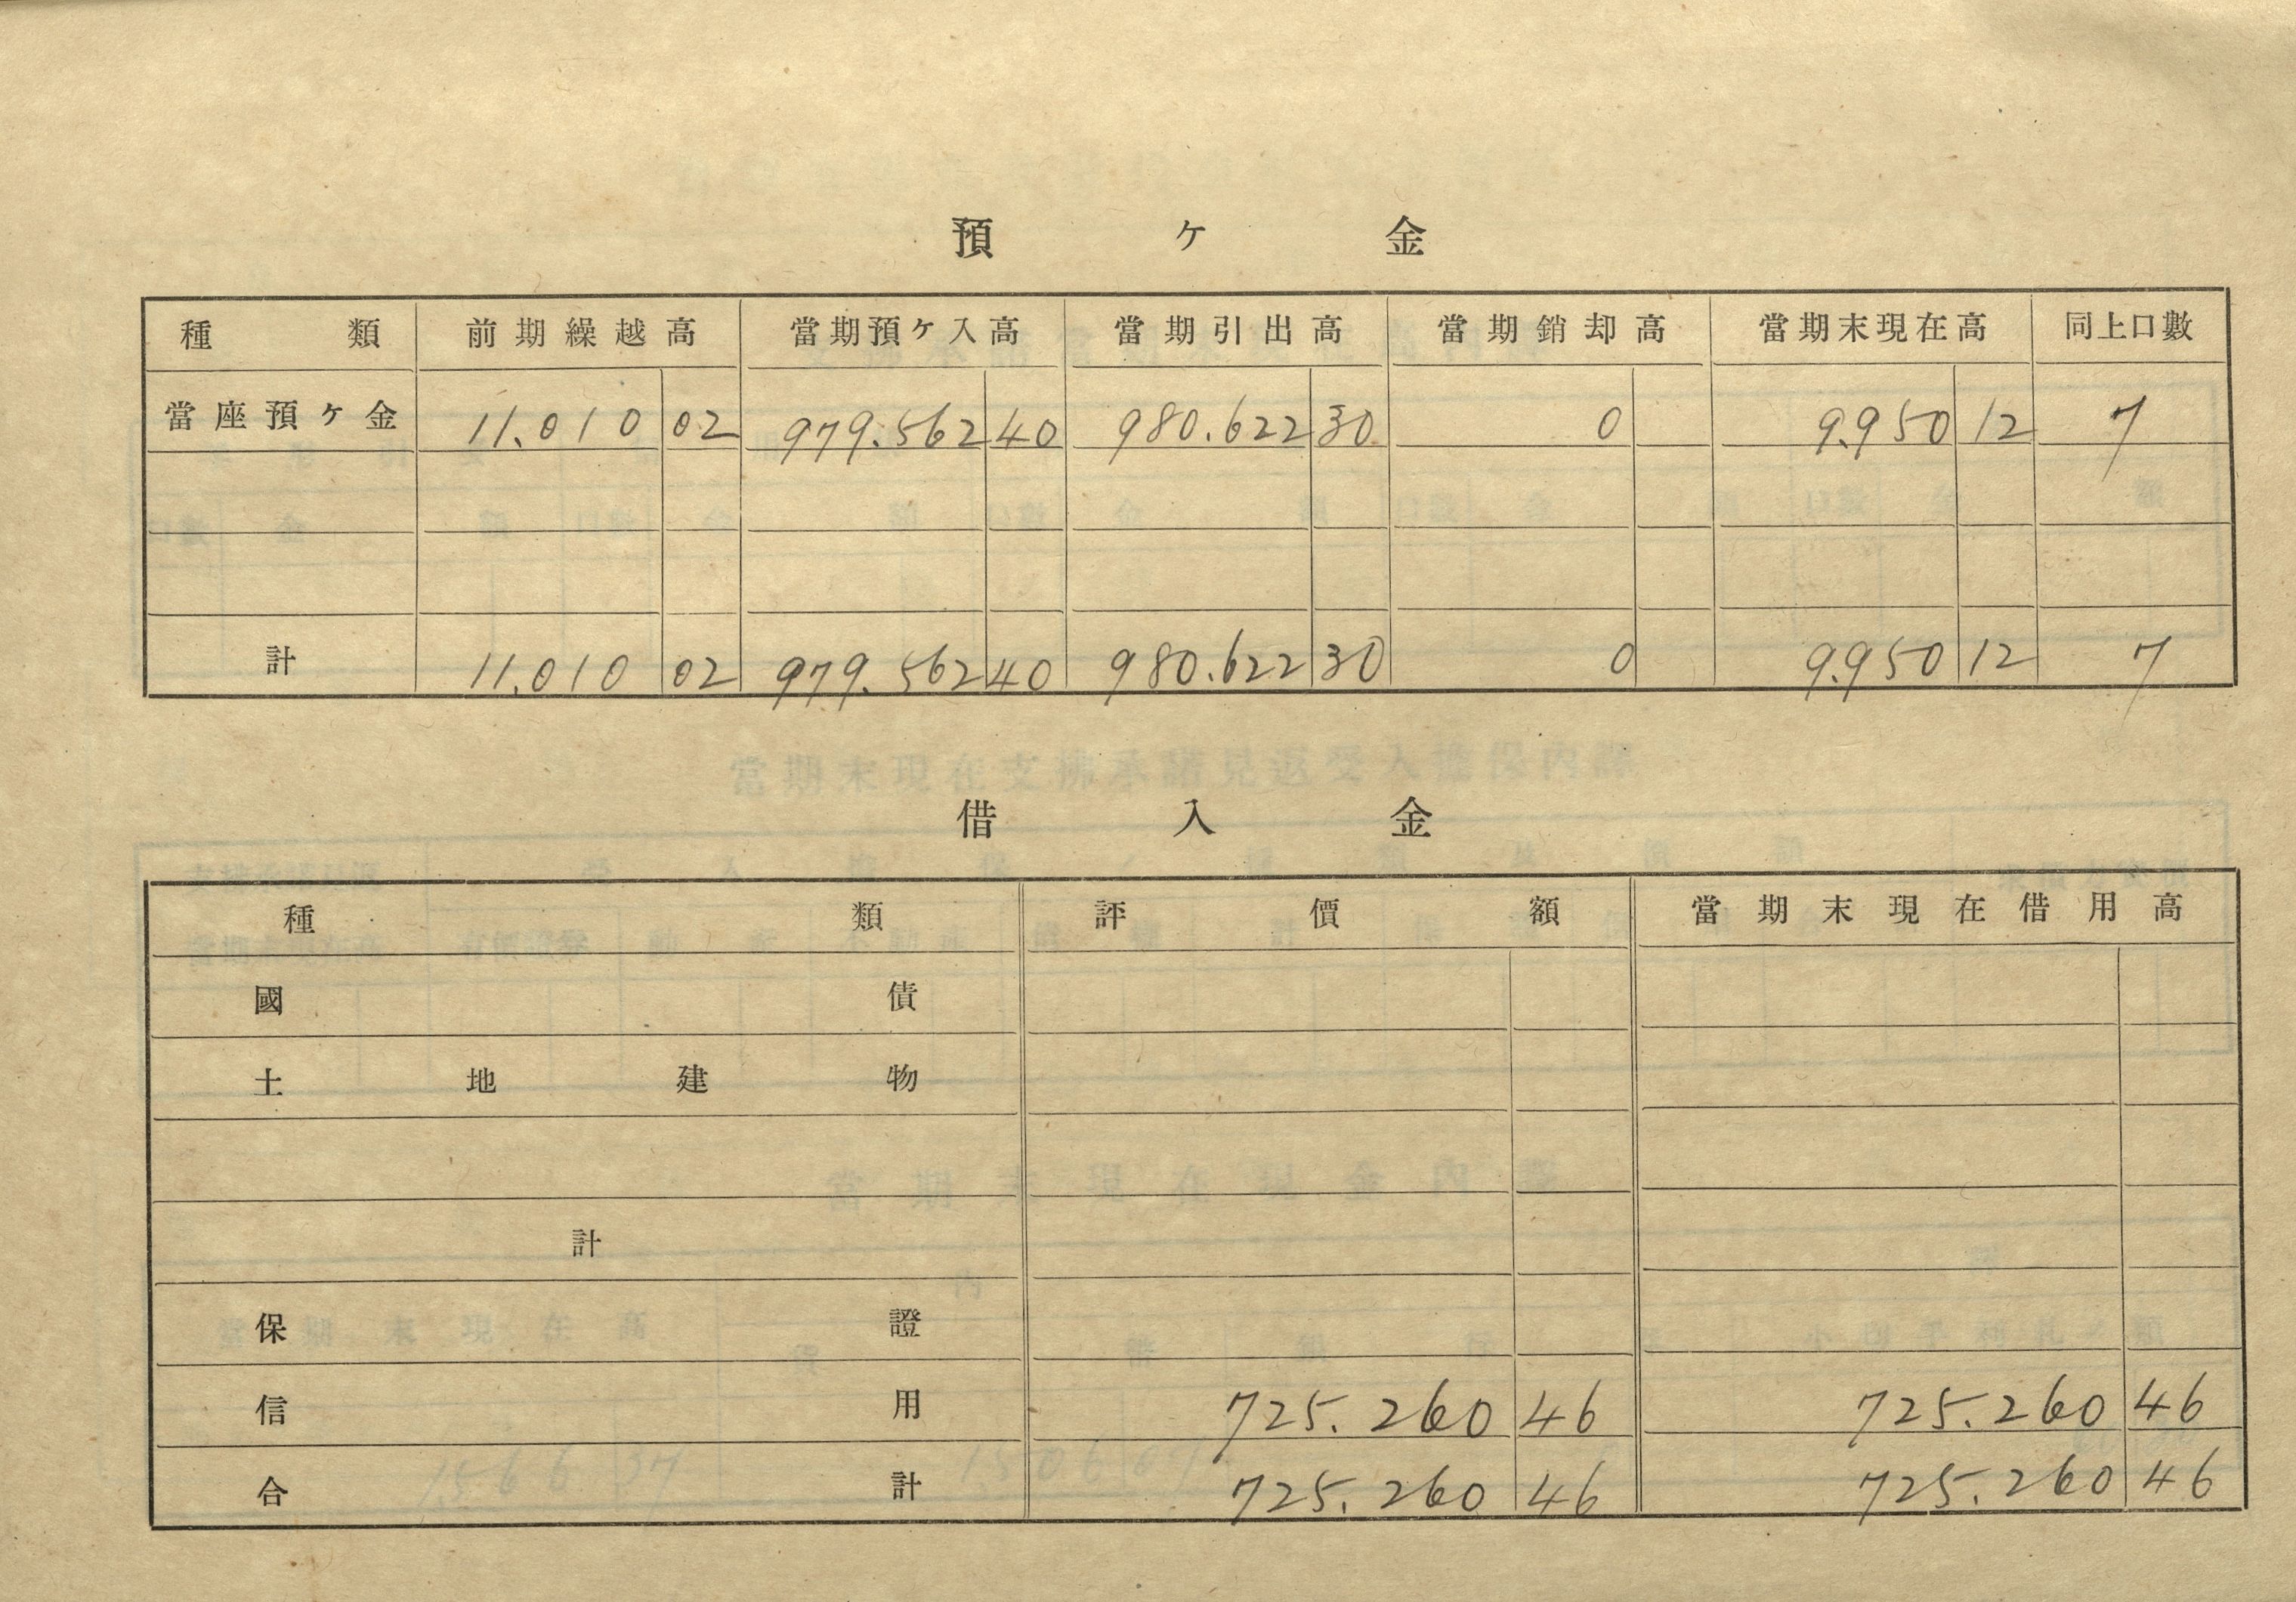 預ケ金
種類 前期繰越高 當期預ケ入高 當期引出高 當期銷却高 當期末現在高 同上口數
當座預ケ金 11.010 02 979.562 40 980.622 30 0 9.950 12 7
計 11.010 02 979.562 40 980.622 30 0 9.950 12 7
借入金
種類 評價額 當期末現在借用高
國債
土地建物
計
保證
信用 725.260 46 725.260 46
合計 725.260 46 725.260 46